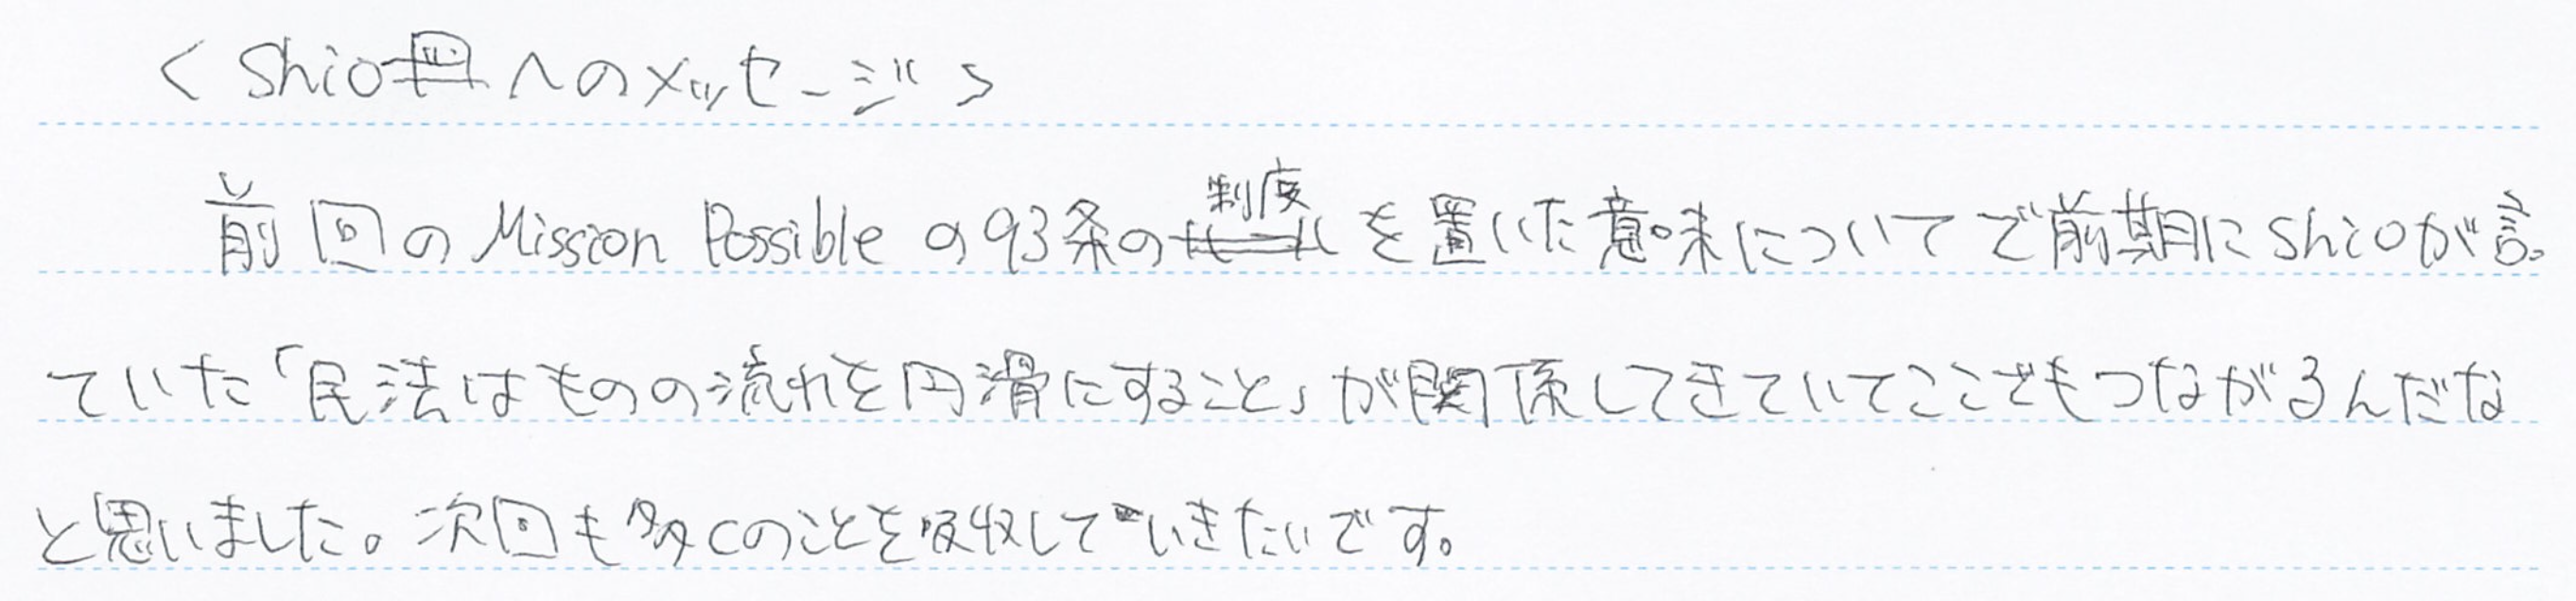 <Shioへのメッセージ>
前回のMission Possibleの93条の制度を置いた意味についてで前期にshioが言っ
ていた「民法はものの流れを円滑にすること」が関係してきていてここでもつながるんだな
と思いました。次回も多くのことを吸収していきたいです。